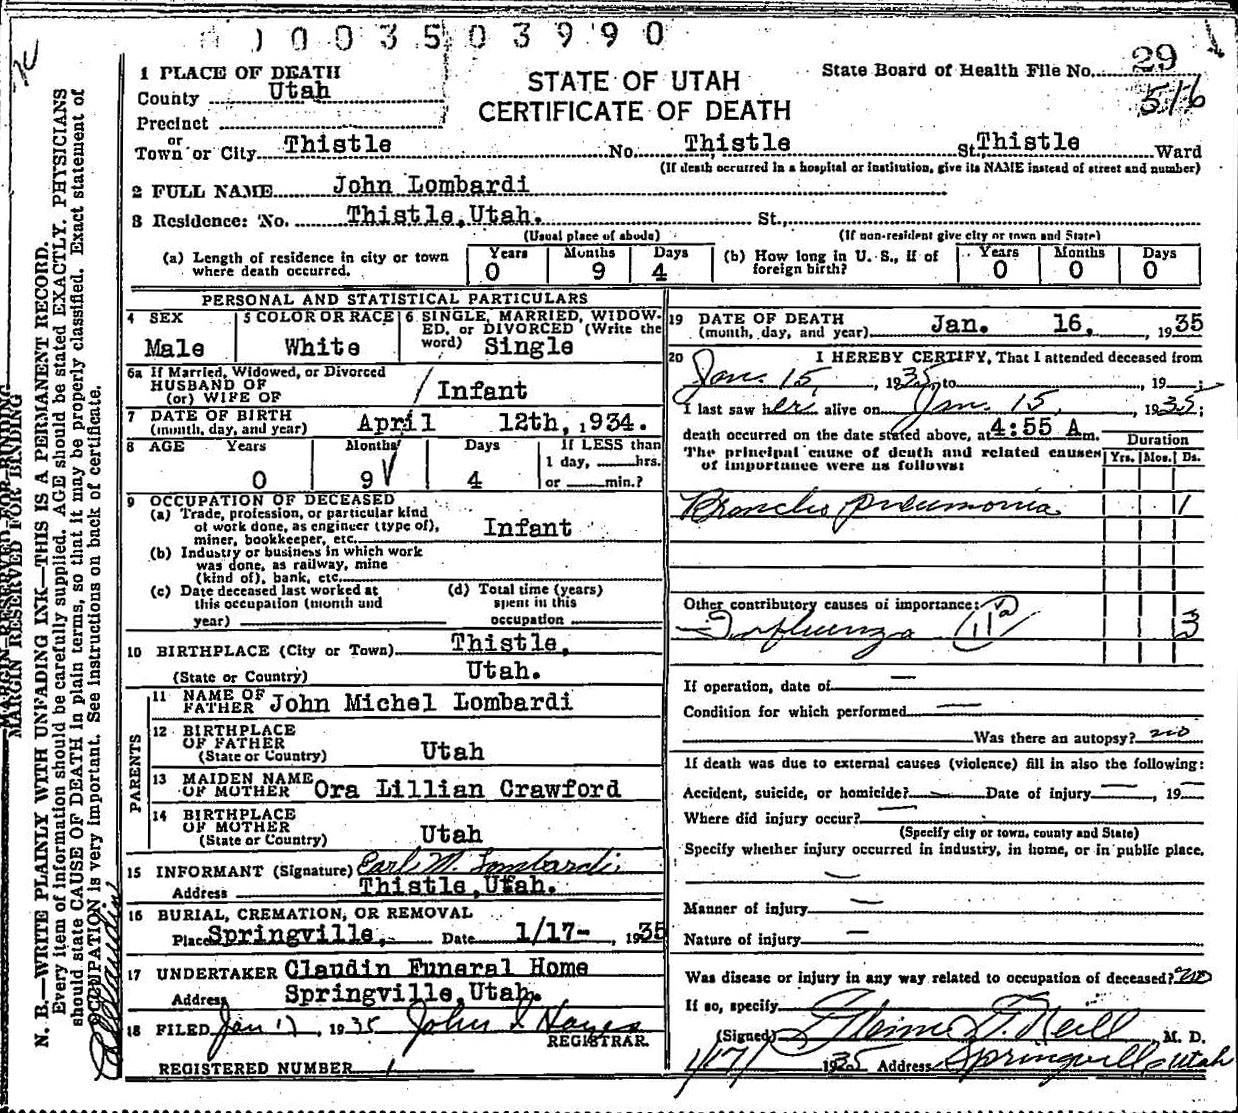 0 0 3 5 0 3 9 9 0
1 PLACE OF DEATH
County Utah
Precinct
or
Town or City Thistle No. Thistle St. Thistle Ward
(If death occurred in a hospital or institution, give its NAME instead of street and number)
STATE OF UTAH
CERTIFICATE OF DEATH
State Board of Health File No. 29
516
2 FULL NAME John Lombardi
3 Residence: No. Thistle, Utah. St.,
(Usual place of abode) (If non-resident give city or town and State)
(a) Length of residence in city or town where death occurred. Years 0 Months 9 Days 4
(b) How long in U. S., if of foreign birth? Years 0 Months 0 Days 0
PERSONAL AND STATISTICAL PARTICULARS
4 SEX Male
5 COLOR OR RACE White
6 SINGLE, MARRIED, WIDOWED, or DIVORCED (Write the word) Single
6a If Married, Widowed, or Divorced
HUSBAND OF
(or) WIFE OF Infant
7 DATE OF BIRTH
(month, day, and year) April 12th, 1934.
8 AGE Years 0 Months 9 Days 4
If LESS than
1 day, hrs.
or min.?
9 OCCUPATION OF DECEASED
(a) Trade, profession, or particular kind
of work done, as engineer (type of),
miner, bookkeeper, etc. Infant
(b) Industry or business in which work
was done, as railway, mine
(kind of), bank, etc.
(c) Date deceased last worked at
this occupation (month and
year)
(d) Total time (years)
spent in this
occupation
10 BIRTHPLACE (City or Town) Thistle,
(State or Country) Utah.
PARENTS
11 NAME OF
FATHER John Michel Lombardi
12 BIRTHPLACE
OF FATHER
(State or Country) Utah
13 MAIDEN NAME
OF MOTHER Ora Lillian Crawford
14 BIRTHPLACE
OF MOTHER
(State or Country) Utah
15 INFORMANT (Signature) Earl M. Lombardi
Address Thistle, Utah.
16 BURIAL, CREMATION, OR REMOVAL
Place Springville, Date 1/17- , 1935
17 UNDERTAKER Claudin Funeral Home
Address Springville, Utah.
18 FILED Jan 17, 1935 John S Hayes
REGISTRAR.
REGISTERED NUMBER 1
19 DATE OF DEATH
(month, day, and year) Jan. 16, 1935
20 I HEREBY CERTIFY, That I attended deceased from
Jan. 15, 1935, to , 19 ;
I last saw her alive on Jan. 15, 1935;
death occurred on the date stated above, at 4:55 A m.
The principal cause of death and related causes
of importance were as follows:
Duration
Yrs. Mos. Ds.
Broncho pneumonia 1
Other contributory causes of importance:
Influenza 11a 3
If operation, date of —
Condition for which performed —
Was there an autopsy? no
If death was due to external causes (violence) fill in also the following:
Accident, suicide, or homicide? — Date of injury —, 19 —
Where did injury occur? —
(Specify city or town, county and State)
Specify whether injury occurred in industry, in home, or in public place.
—
Manner of injury —
Nature of injury —
Was disease or injury in any way related to occupation of deceased? no
If so, specify
(Signed) Neill M. D.
1/17/ 1935 Address Springville Utah
MARGIN RESERVED FOR BINDING
N. B.—WRITE PLAINLY WITH UNFADING INK—THIS IS A PERMANENT RECORD.
Every item of information should be carefully supplied. AGE should be stated EXACTLY. PHYSICIANS
should state CAUSE OF DEATH in plain terms, so that it may be properly classified. Exact statement of
OCCUPATION is very important. See instructions on back of certificate.
Claudin